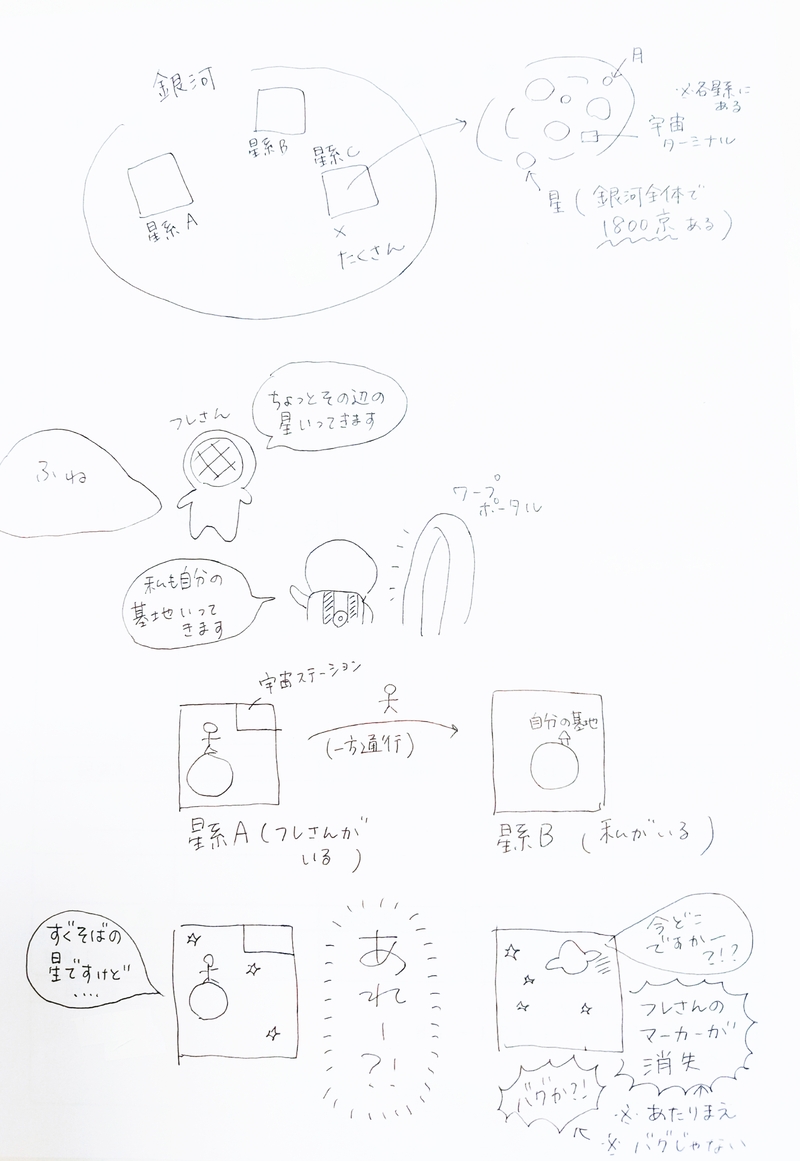 銀河
星系B
星系C
星系A
×
たくさん
月
※各星系に
ある
宇宙
ターミナル
星(銀河全体で
1800京ある)
ちょっとその辺の
星いってきます
フレさん
ふね
ワープ
ポータル
私も自分の
基地いって
きます
宇宙ステーション
(一方通行)
自分の基地
星系A(フレさんが
いる)
星系B(私がいる)
すぐそばの
星ですけど
‥‥
あれー?!
今どこ
ですかー
?!?
フレさんの
マーカーが
消失
バグか?!
※あたりまえ
※バグじゃない